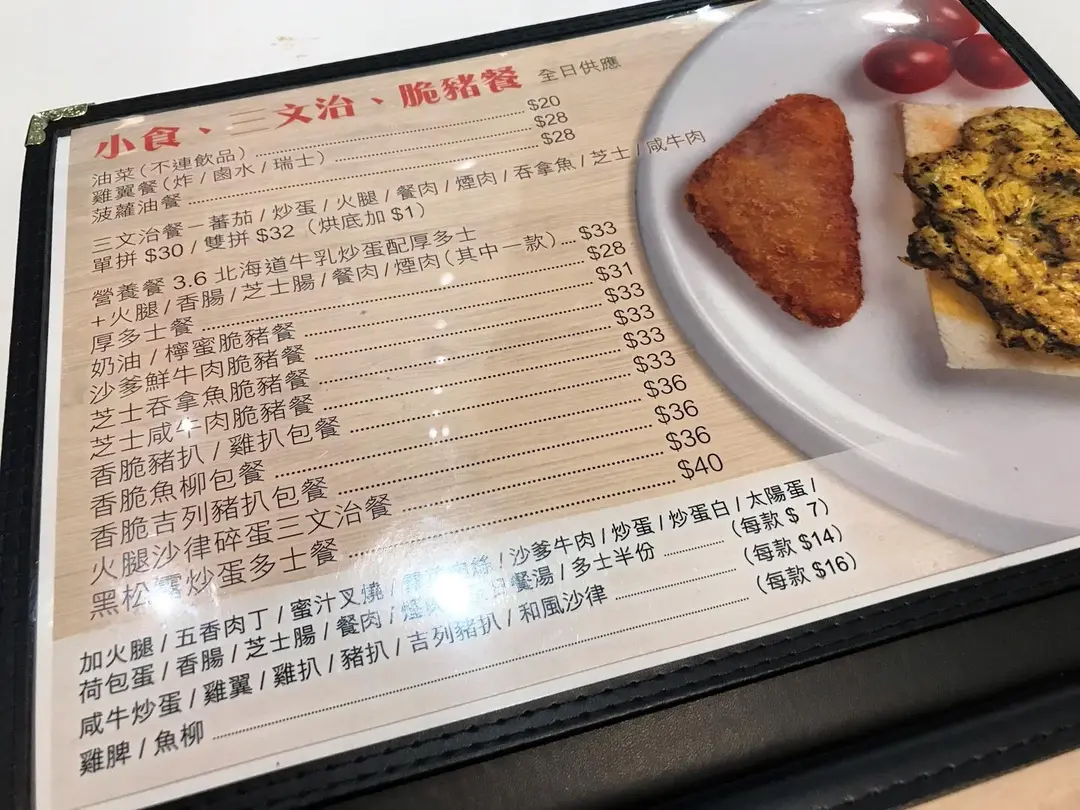 小食、三文治、脆豬餐 全日供應
油菜(不連飲品) $20
雞翼餐(炸/鹵水/瑞士) $28
菠蘿油餐 $28
三文治餐–蕃茄/炒蛋/火腿/餐肉/煙肉/吞拿魚/芝士/咸牛肉
單拼 $30 / 雙拼 $32 (烘底加 $1)
營養餐 3.6 北海道牛乳炒蛋配厚多士
+火腿/香腸/芝士腸/餐肉/煙肉(其中一款).... $33
厚多士餐 $28
奶油/檸蜜脆豬餐 $31
沙爹鮮牛肉脆豬餐 $33
芝士吞拿魚脆豬餐 $33
芝士咸牛肉脆豬餐 $33
香脆豬扒/雞扒包餐 $33
香脆魚柳包餐 $36
香脆吉列豬扒包餐 $36
火腿沙律碎蛋三文治餐 $36
黑松露炒蛋多士餐 $40
加火腿/五香肉丁/蜜汁叉燒/絲/沙爹牛肉/炒蛋/炒蛋白/太陽蛋/
荷包蛋/香腸/芝士腸/餐肉/煙肉/日餐湯/多士半份 (每款 $ 7)
咸牛炒蛋/雞翼/雞扒/豬扒/吉列豬扒/和風沙律 (每款 $14)
雞脾/魚柳 (每款 $16)